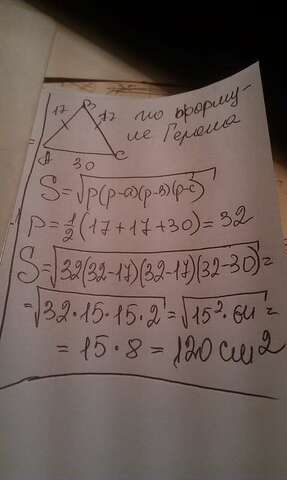 B
17 17 по форму-
ле Герона
A 30 C
S=√p(p-a)(p-b)(p-c)
p=1/2(17+17+30)=32
S=√32(32-17)(32-17)(32-30)=
=√32·15·15·2=√15²·64=
=15·8=120 см²